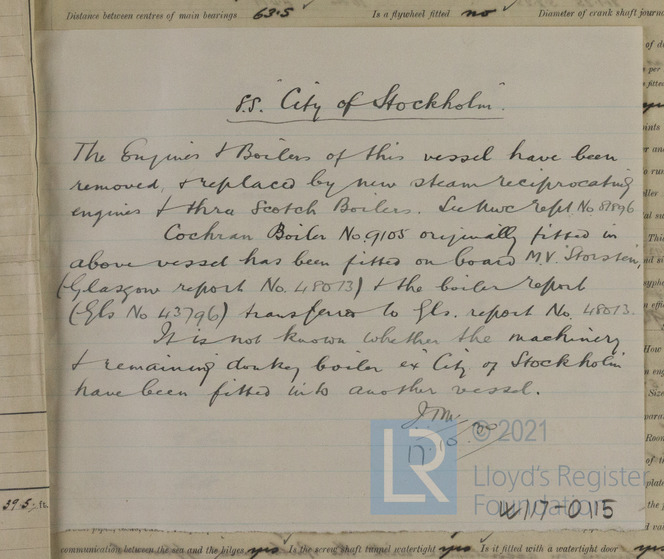 Distance between centres of main bearings 63.5 Is a flywheel fitted no Diameter of crank shaft journ
S.S. "City of Stockholm".
The Engines & Boilers of this vessel have been
removed, & replaced by new steam reciprocating
engines & three Scotch Boilers. See Nwc rept No
Cochran Boiler No. 9105 originally fitted in
above vessel has been fitted on board M.V. Storstein,
(Glasgow report No. 48073) & the boiler report
(Gls No 43796) transferred to Gls. report No. 48073.
It is not known whether the machinery
& remaining donkey boiler ex City of Stockholm
have been fitted into another vessel.
17.10.
© 2021
LR
Lloyd's Register
Foundation
W117-0115
39.5 ft.
communication between the sea and the bilges yes Is the screw shaft tunnel watertight yes Is it fitted with a watertight door yes